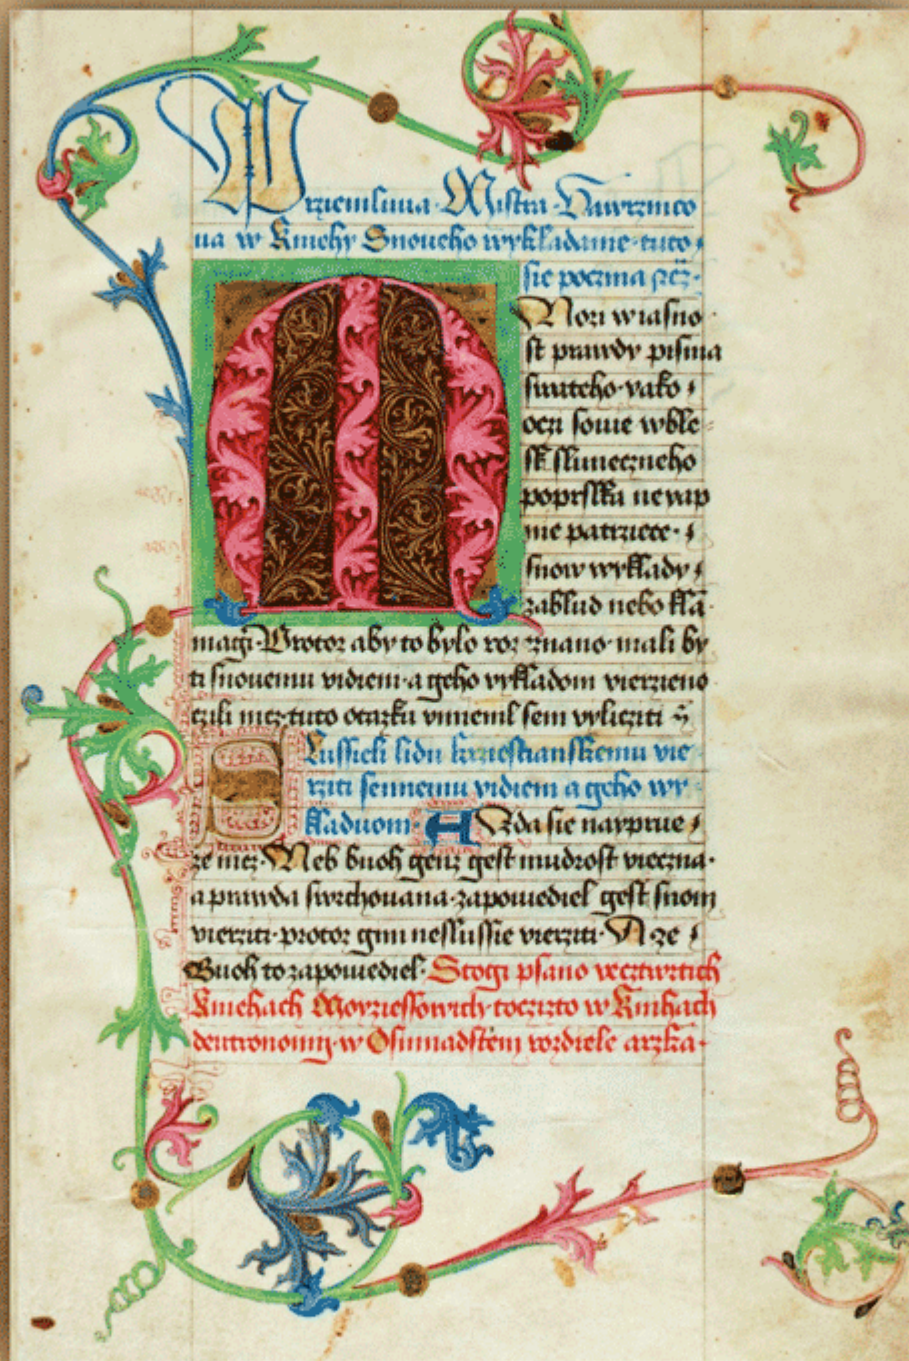 Prziemluwa Mistra Hawrzinco
ua w Kniehy Snoueho wykladanie tuto
sie poczina rzec
Mori w iasno
st prawdy pisma
swateho yako
oczi sowie w ble
sk sluneczneho
poprslku ne
nie patrziece
snow wyklady
zablud nebo kla
macz Protoz aby to bylo roz eznano mali by
ti snouemu vidieni a geho vykladom vierzieno
czili nicz tuto otazku vmienil sem vyliciti
Slussieli lidu krziestianskemu vie
rziti sennemu vidieni a geho wy
kladuom A Zda sie nayprue
ze nicz Neb buoh genz gest mudrost vieczna
a prawda swrchouana zapowiediel gest snom
vierziti protoz gim neslussie vierziti A ze
Buoh to zapowiediel Stogi psano we cztwrtich
Kniehach Moyziessowich toczizto w Knihach
deutronomy w Osmnadstem rozdiele arzka